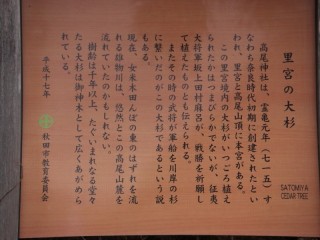 里宮の大杉
高尾神社は、霊亀元年（七一五）す
なわち奈良時代初期に創建されたとい
われ、里宮と高尾山頂に本宮がある。
この里宮境内の大杉がいつごろ植え
られたかはつまびらかでないが、征夷
大将軍坂上田村麻呂が、戦勝を祈願し
て植えたものとも伝えられる。
またその時の武将が軍船を川岸の杉
に繋いだのがこの大杉であるという説
もある。
現在、女米木田んぼの東のはずれを流
れる雄物川は、悠然とこの高尾山麓を
流れていたのかもしれない。
樹齢は千年以上、たぐいまれなる堂々
たる大杉は御神木として広くあがめら
れている。
平成十七年
秋田市教育委員会
SATOMIYA
CEDAR TREE